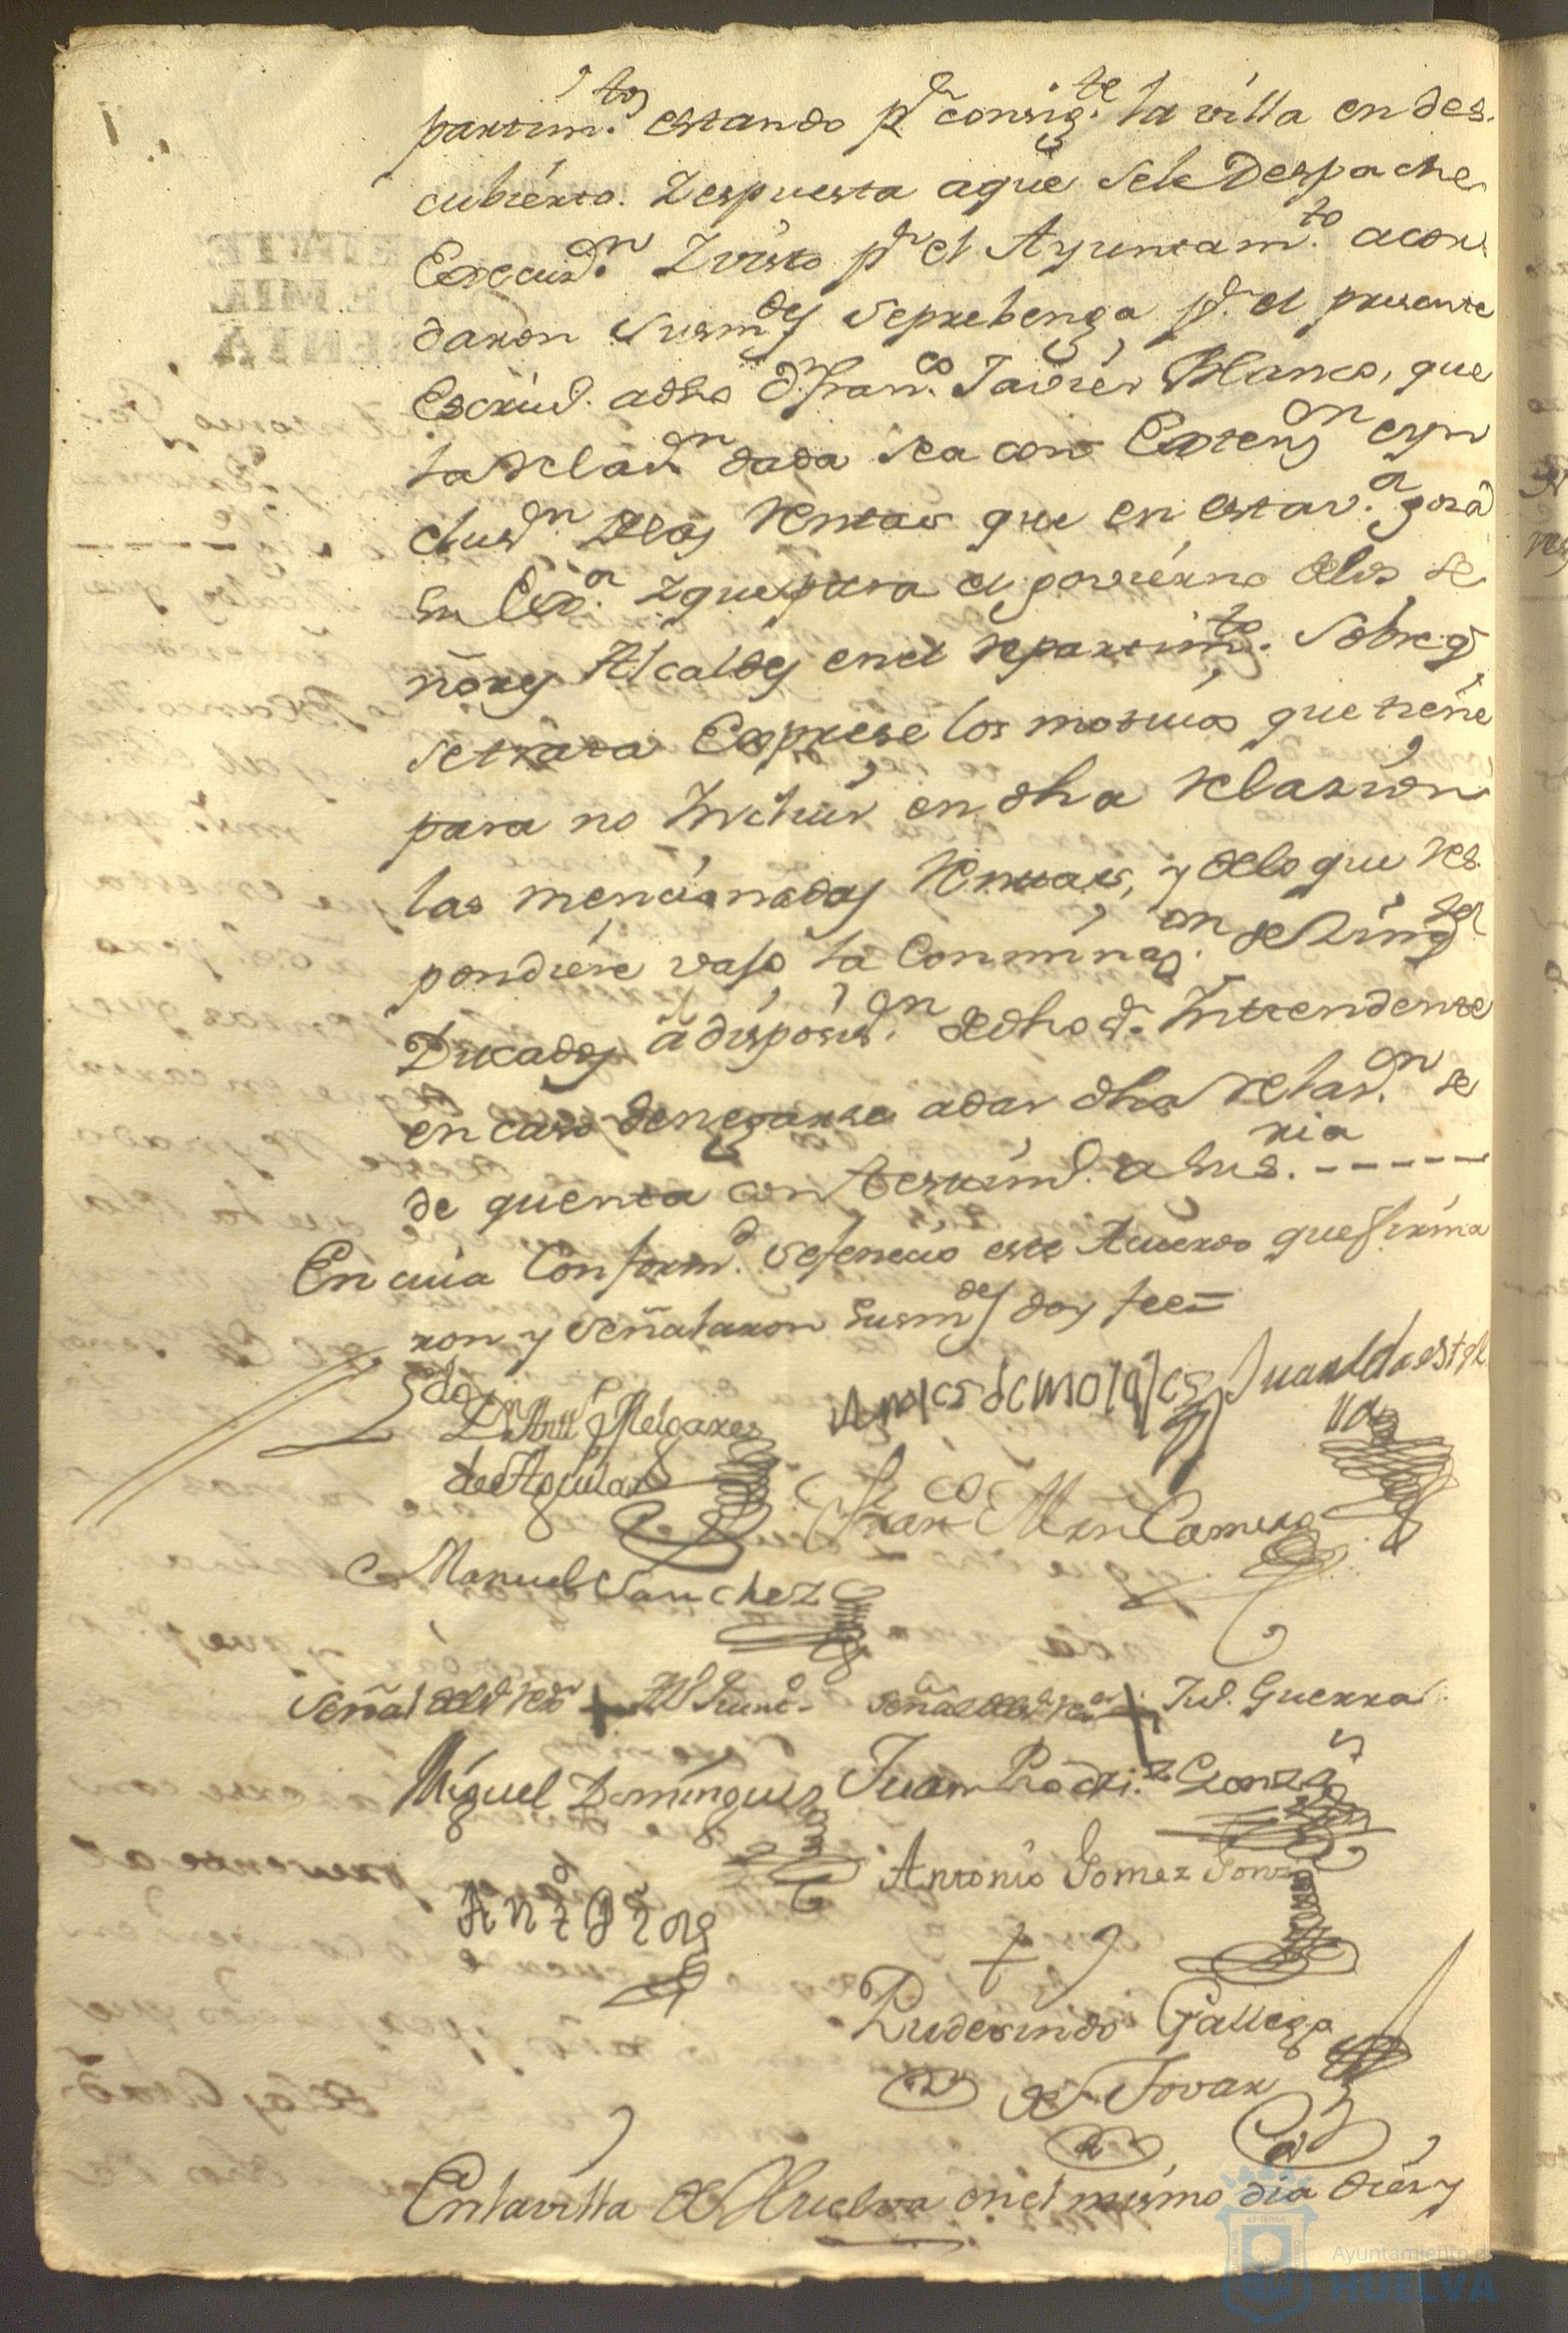 partim.tos estando pr consig.te la villa en des-
cubierto. Y espuesta aque sele Despache
Execuz.on Y visto pr el Ayuntam.to acor-
daron susm.des seprebenga pr el presente
Escriv. adho Dn Fran.co Javier Blanco, que
la relaz.on dada sea con Extenz.on e yn
cluz.on delas Rentas que en esta v.a goza
su Exc.a Y que para el govierno delos se
ñores Alcaldes en el repartim.to sobre q
setrata Exprese los motivos que tiene
para no Incluir en dha Relazion
las mencionadas Rentas, y delo que res-
pondiere vajo la Conminaz.on de
Ducados a disposiz.on dedho Sr Intendente
en caso denegarse adar dha Relaz.on se
de quenta con testim.o a Su S.ria - - - - -
En cuia Conform.d sefenecio este Acuerdo que firma
ron y señalaron susm.des doy fee =
Melgarejo
de Aguilar
Fran.co Mrn Camero
Manuel Sanchez
Señal del Rex.or + señal del + Guerra
Miguel Dominguez Juan Rodri.z Gonz.s
Antonio Gomez Gonz
Ruderindo Gallego
de Tovar
En la villa de Huelva en el mismo dia diez y
Ayuntamiento de
HUELVA